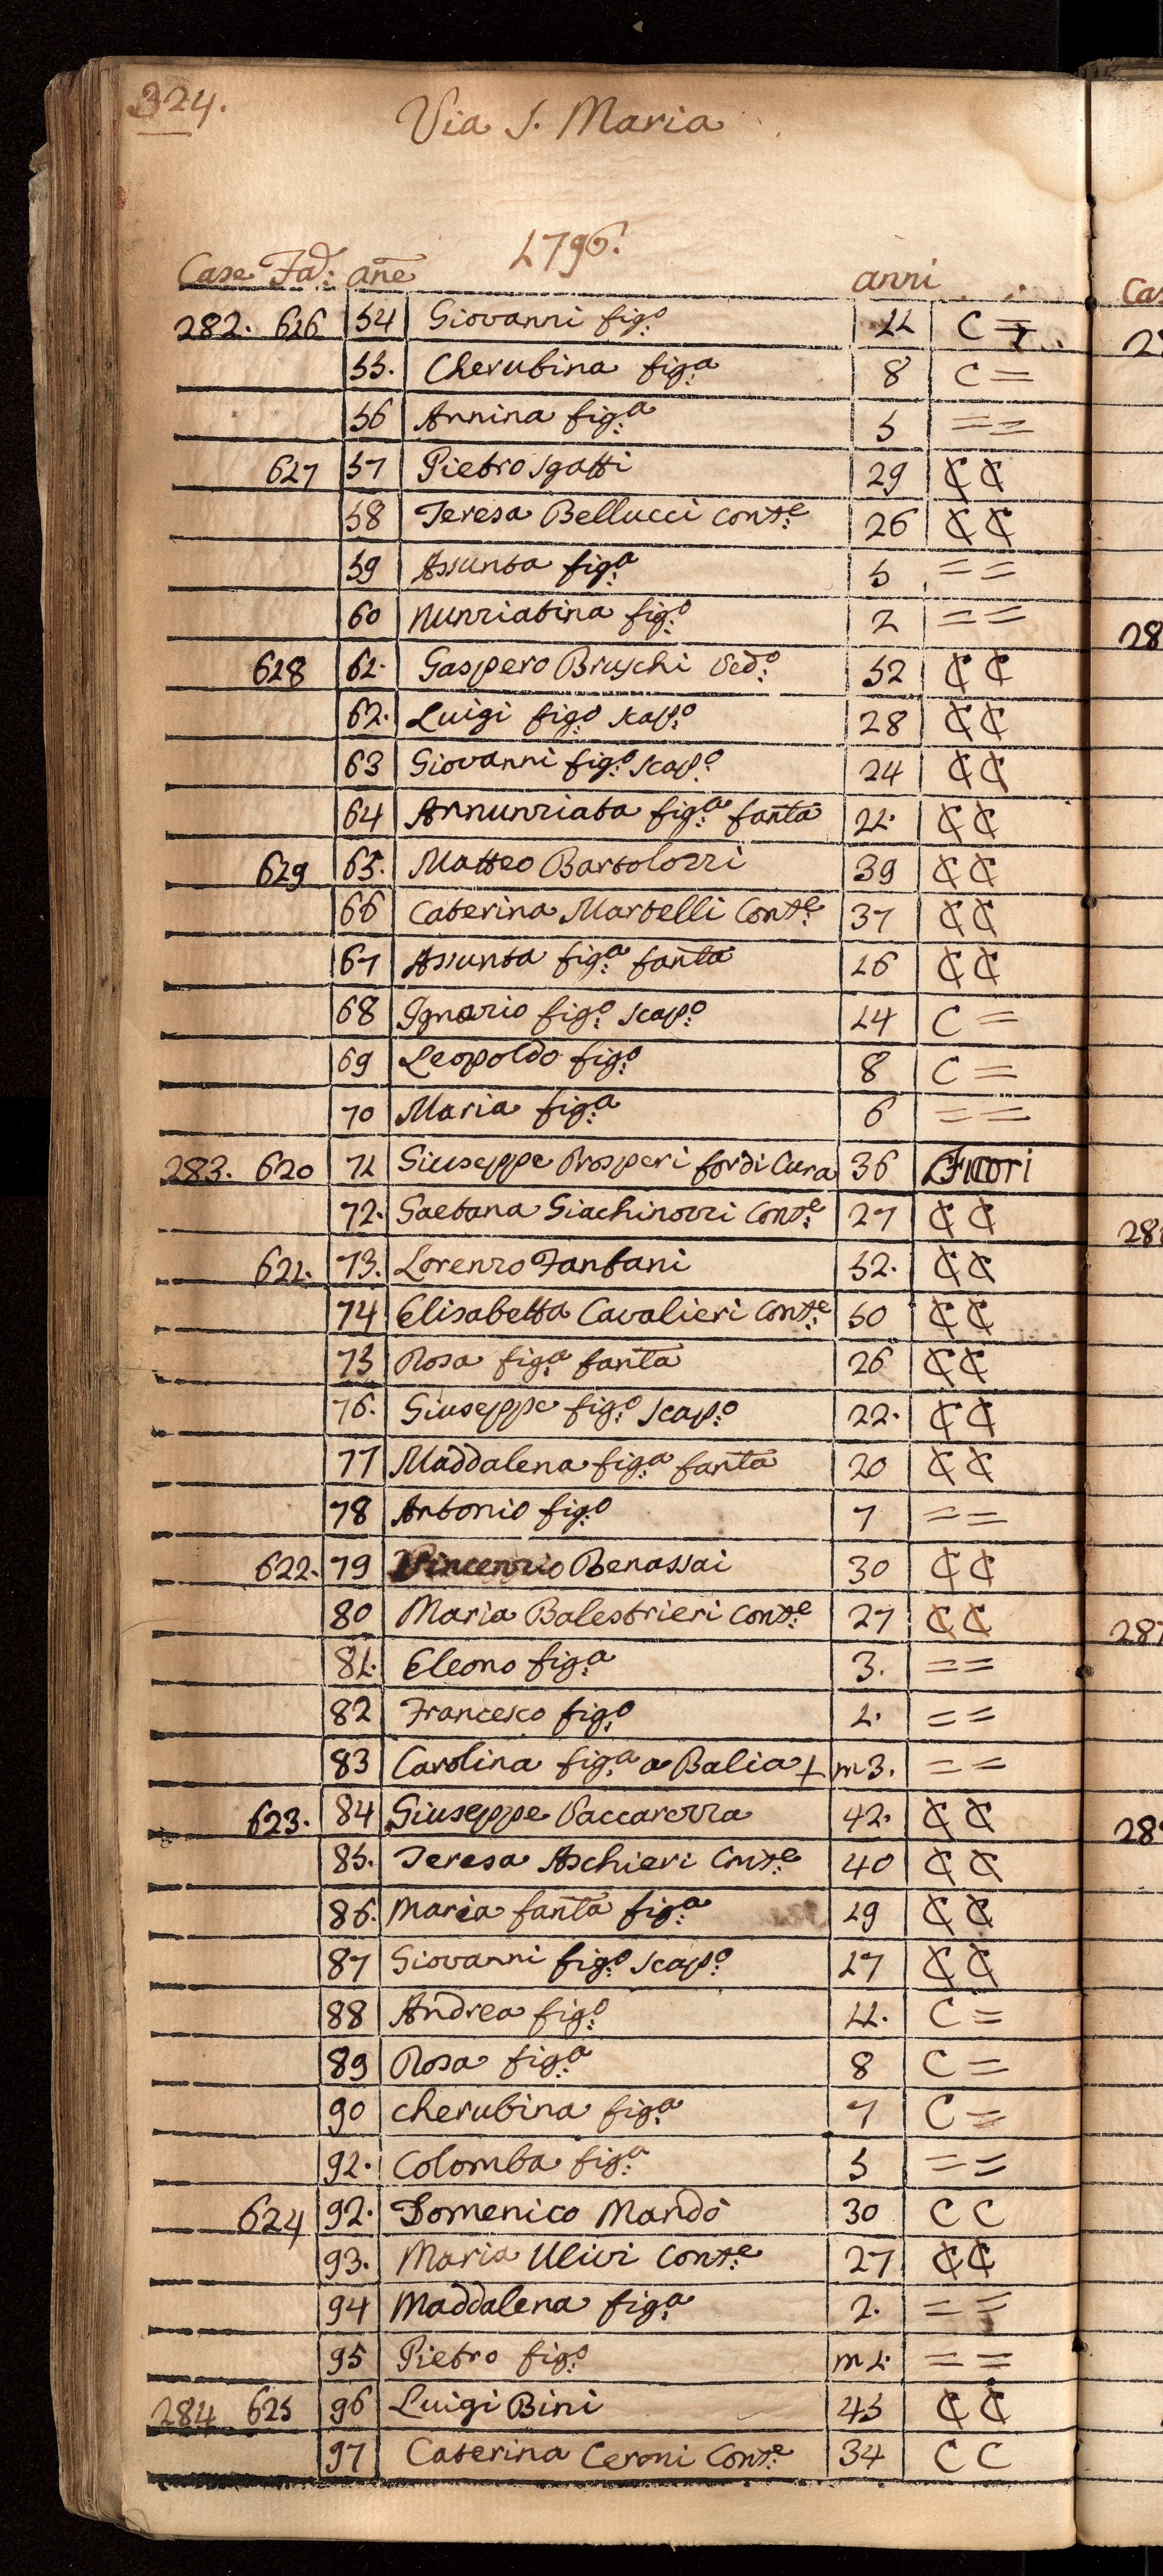 324.
Via S. Maria
1796.
Case Fad: añe anni
282. 626 54 Giovanni fig:o 11 C =
55. Cherubina fig:a 8 C =
56 Annina fig:a 5 = =
627 57 Pietro Sgatti 29 ₵ ₵
58 Teresa Bellucci Cons:e 26 ₵ ₵
59 Assunta fig:a 5 = =
60 Nunziatina fig:o 2 = =
628 61. Gaspero Bruschi Ved:o 52 ₵ ₵
62. Luigi fig:o scap:o 28 ₵ ₵
63 Giovanni fig:o scap:o 24 ₵ ₵
64 Annunziata fig:a fanta 21. ₵ ₵
629 65. Matteo Bartolozzi 39 ₵ ₵
66 Caterina Martelli Cons:e 37 ₵ ₵
67 Assunta fig:a fanta 16 ₵ ₵
68 Ignazio fig:o scap:o 14 C =
69 Leopoldo fig:o 8 C =
70 Maria fig:a 6 = =
283. 620 71 Giuseppe Prosperi for di Cura 36 Fuori
72. Gaetana Giachinozzi Cons:e 27 ₵ ₵
621. 73. Lorenzo Fanfani 52. ₵ ₵
74 Elisabetta Cavalieri Cons:e 50 ₵ ₵
75 Rosa fig:a fanta 26 ₵ ₵
76. Giuseppe fig:o scap:o 22. ₵ ₵
77 Maddalena fig:a fanta 20 ₵ ₵
78 Antonio fig:o 7 = =
622. 79 Vincenzio Benassai 30 ₵ ₵
80 Maria Balestrieri Cons:e 27 ₵ ₵
81. Eleono fig:a 3. = =
82 Francesco fig:o 1. = =
83 Carolina fig:a a Balia + m3. = =
623. 84 Giuseppe Vaccarezza 42. ₵ ₵
85. Teresa Aschieri Cons:e 40 ₵ ₵
86. Maria fanta fig:a 19 ₵ ₵
87 Giovanni fig:o scap:o 17 ₵ ₵
88 Andrea fig:o 11. C =
89 Rosa fig:a 8 C =
90 Cherubina fig:a 7 C =
91. Colomba fig:a 5 = =
624 92. Domenico Mandò 30 C C
93. Maria Ulivi Cons:e 27 ₵ ₵
94 Maddalena fig:a 2. = =
95 Pietro fig:o m 1. = =
284 625 96 Luigi Bini 45 ₵ ₵
97 Caterina Ceroni Cons:e 34 C C